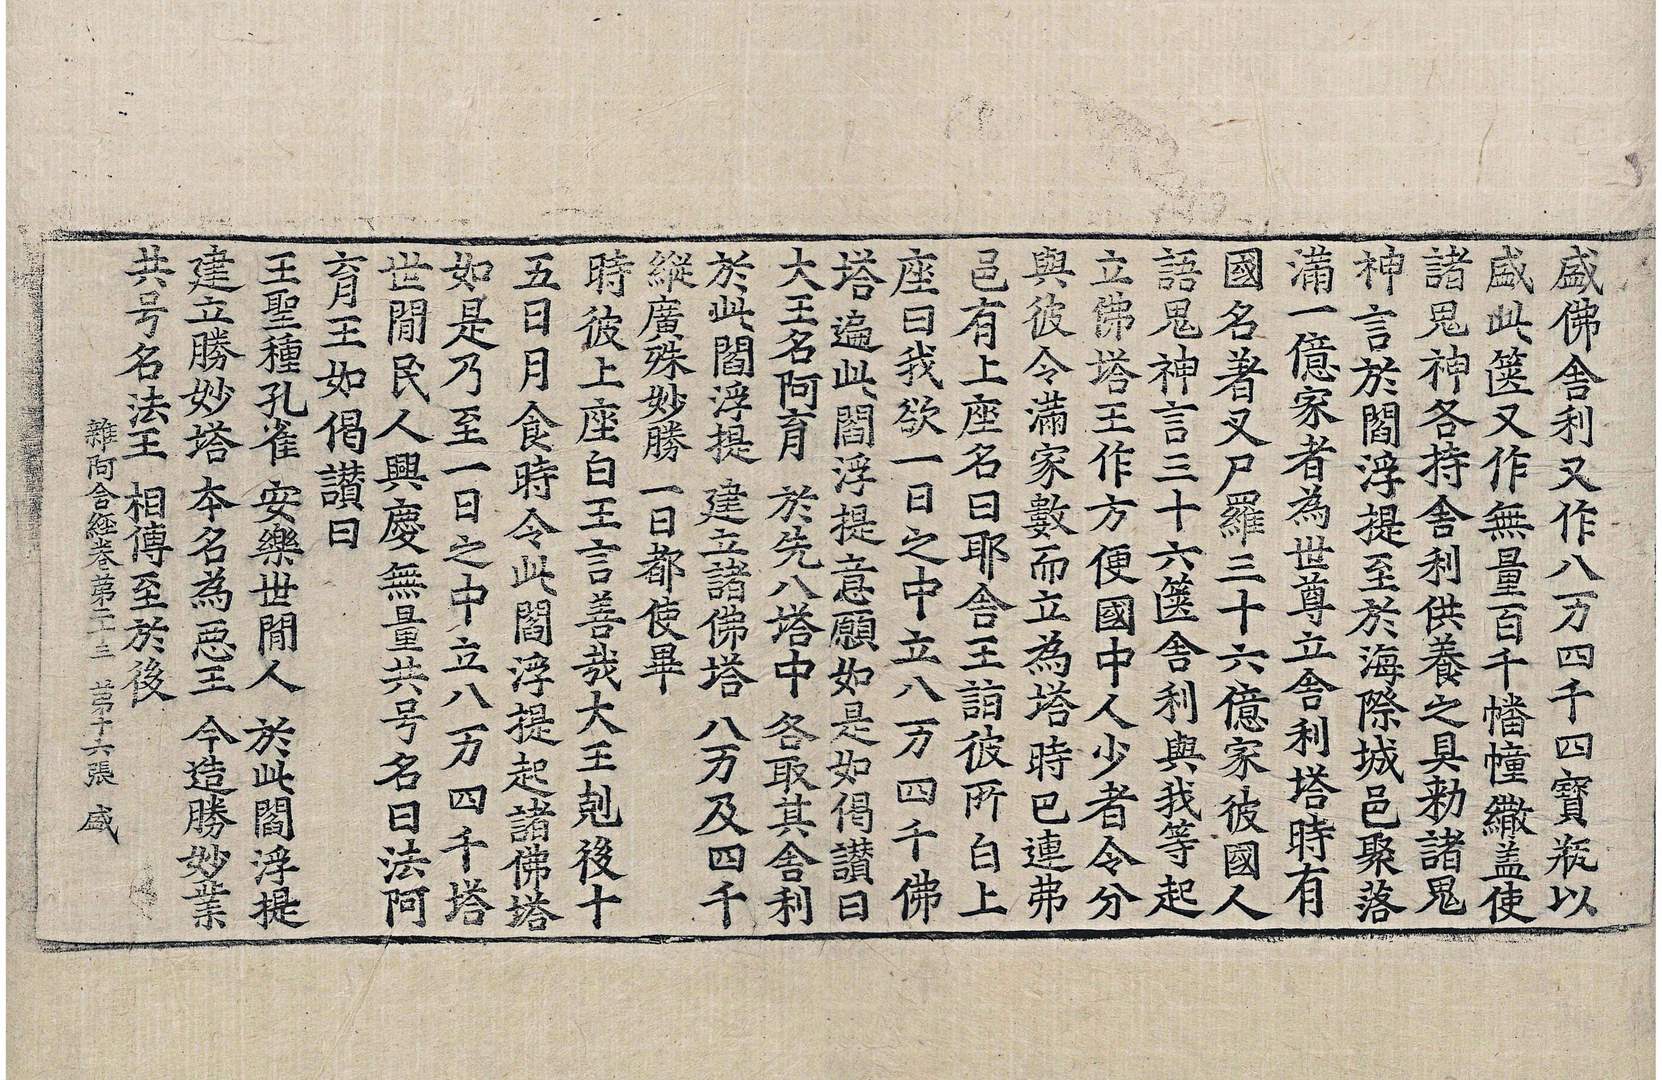 盛佛舎利又作八万四千四寶瓶以
盛此篋又作無量百千幡幢繖盖使
諸鬼神各持舎利供養之具勑諸鬼
神言於閻浮提至於海際城邑聚落
滿一億家者為世尊立舎利塔時有
國名著叉尸羅三十六億家彼國人
語鬼神言三十六篋舎利與我等起
立佛塔王作方便國中人少者令分
與彼令滿家數而立為塔時巴連弗
邑有上座名曰耶舎王詣彼所白上
座曰我欲一日之中立八万四千佛
塔遍此閻浮提意願如是如偈讃曰
大王名阿育 於先八塔中 各取其舎利
於此閻浮提 建立諸佛塔 八万及四千
縱廣殊妙勝 一日都使畢
時彼上座白王言善哉大王剋後十
五日月食時令此閻浮提起諸佛塔
如是乃至一日之中立八万四千塔
世間民人興慶無量共号名曰法阿
育王如偈讃曰
王聖種孔雀 安樂世間人 於此閻浮提
建立勝妙塔 本名為惡王 今造勝妙業
共号名法王 相傳至於後
雜阿含經卷第二十三 第十六張 盛